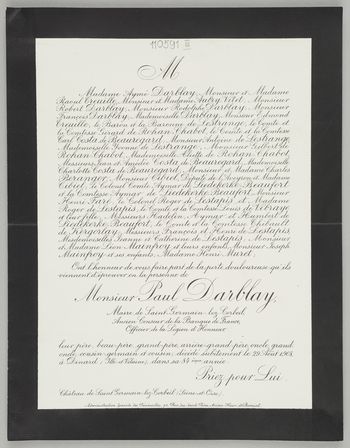 110591 III
M
Madame Aymé Darblay, Monsieur et Madame
Raoul Treuille, Monsieur et Madame Aubry Vitet, Monsieur
Robert Darblay, Monsieur Rodolphe Darblay, Monsieur
François Darblay, Mademoiselle Darblay, Monsieur Edmond
Treuille, le Baron et la Baronne de Lestrange, le Comte et
la Comtesse Gérard de Rohan Chabot, le Comte et la Comtesse
Carl Costa de Beauregard, Monsieur de Lestrange,
Mademoiselle Yvonne de Lestrange, Monsieur de
Rohan Chabot, Mademoiselle de Rohan Chabot,
Messieurs Jean et Amédée Costa de Beauregard, Mademoiselle
Charlotte Costa de Beauregard, Monsieur et Madame Charles
Béranger, Monsieur Cibiel Député de l'Aveyron et Madame
Cibiel, le Colonel Comte Aymar de Liedekerke Beaufort
et la Comtesse Aymar de Liedekerke Beaufort, Monsieur
Henri Faré, le Colonel Roger de Lestapis et Madame
Roger de Lestapis, le Comte et la Comtesse Louis de Vitrayé
et leur fille, Messieurs Hadelin, Aymar et Humbert de
Liedekerke Beaufort, le Comte et la Comtesse Thibault
de Kergorlay, Messieurs François et Henri de Lestapis,
Mesdemoiselles Jeanne et Catherine de Lestapis, Monsieur
et Madame Léon Mainfroy et leurs enfants, Monsieur Joseph
Mainfroy et ses enfants, Madame Henri Muret.
Ont l'honneur de vous faire part de la perte douloureuse qu'ils
viennent d'éprouver en la personne de
Monsieur Paul Darblay,
Maire de Saint Germain-lez-Corbeil,
Ancien Censeur de la Banque de France,
Officier de la Légion d'Honneur
leur père, beau-père, grand-père, arrière-grand-père, oncle, grand-
oncle, cousin-germain et cousin, décédé subitement le 29 Août 1908,
à Dinard (Ille-et-Vilaine), dans sa 84ème année.
Priez pour Lui.
Château de Saint Germain-lez-Corbeil (Seine-et-Oise)